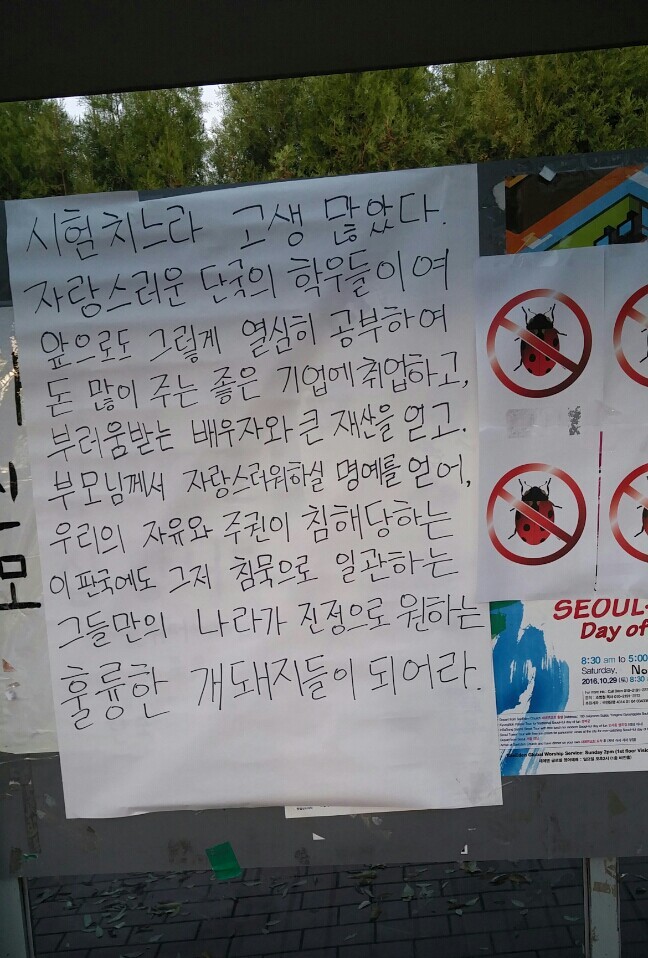 시험치느라 고생 많았다.
자랑스러운 단국의 학우들이여
앞으로도 그렇게 열심히 공부하여
돈 많이 주는 좋은 기업에 취업하고,
부러움받는 배우자와 큰 재산을 얻고.
부모님께서 자랑스러워하실 명예를 얻어,
우리의 자유와 주권이 침해당하는
이 판국에도 그저 침묵으로 일관하는
그들만의 나라가 진정으로 원하는
훌륭한 개돼지들이 되어라.
SEOUL-
Day of
8:30 am to 5:00
Saturday, No
2016.10.29 (토) 8:30
Global Worship Service: Sunday 2pm (1st floor Visio